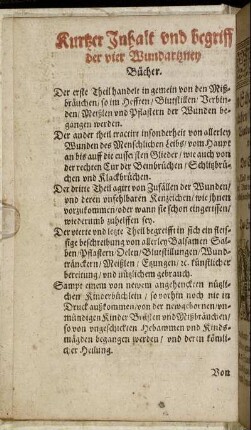 Kurtzer Inhalt vnd begriff
der vier Wundartzney
Bücher.
Der erste Theil handelt in gemein von den Miß-
bräuchen / so im Hefften / Blutstillen / Verbin-
den / Meißlen vnd Pflastern der Wunden be-
gangen werden.
Der ander theil tractirt insonderheit von allerley
Wunden des Menschlichen Leibs / vom Haupt
an bis auff die eussersten Glieder / wie auch von
der rechten Cur der Beinbrüchen / Schlitzbrü-
chen vnd Klackbrüchen.
Der dritte Theil agirt von Zufällen der Wunden /
vnd deren vnfehlbaren Kenzeichen / wie jhnen
vorzukommen / oder wann sie schon eingerissen /
wiederumb zuhelffen sey.
Der vierte vnd letzte Theil begreifft in sich ein fleis-
sige beschreibung von allerley Balsamen / Sal-
ben / Pflastern / Oelen / Blutstillungen / Wund-
tränckern / Meißlen / Etzungen / ꝛc. künstlicher
bereitung / vnd nützlichem gebrauch.
Sampt einem von newem angehenckten nützli-
chen Kinderbüchlein / so vorhin noch nie in
Druck außkommen / von der newgebornen / vn-
mündigen Kinder Brüchen vnd Mißbräuchen /
so von vngeschickten Hebammen vnd Kinds-
mägden begangen werden / vnd deren künstli-
cher Heilung.
Von